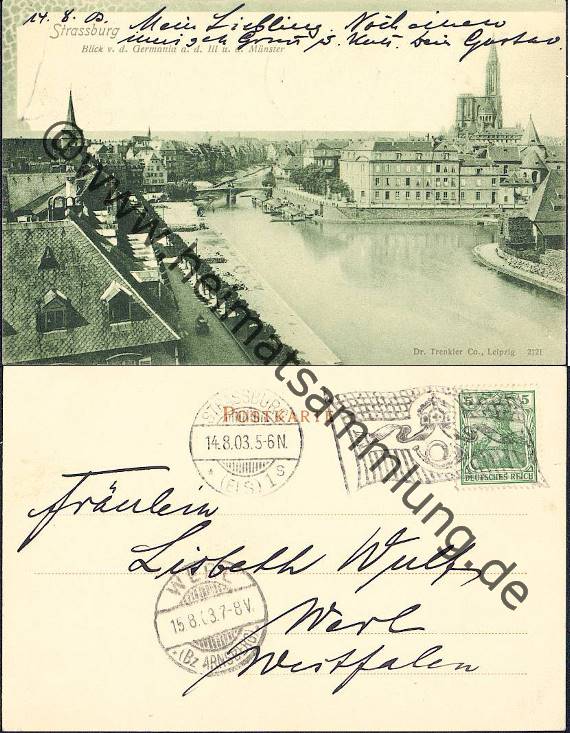 14. 8. 03.
Mein Liebling Noch einen
Strassburg
innigen Gruss u. Kuss Dein Gustav.
Blick v. d. Germania a. d. Ill u. d. Münster
©www.heimatsammlung.de
Dr. Trenkler Co., Leipzig. 2121
POSTKARTE
STRASSBURG
14.8.03.5-6N.
* (ELS) 1 s
5 5
DEUTSCHES REICH
Fräulein
Lisbeth Wulf,
WERL
15.8.03.7-8V.
* (Bz ARNSBERG)
Werl
Westfalen